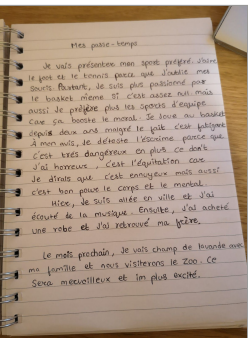 Mes passe-temps
Je vais présentée mon sport préféré. J'aime
le foot et le tennis parce que j'oublie mes
soucis. Pourtant, je suis plus passionné par
le basket même si c'est assez nul mais
aussi je préfère plus les sports d'équipe
car sa booste le moral. Je joue au basket
depuis deux ans malgré le fait c'est fatigant
À mon avis, je déteste l'escrime parce que
c'est très dangereux en plus ce dont
j'ai horreur, c'est l'équitation car
Je dirais que c'est ennuyeux mais aussi
c'est bon pour le corps et le mental.
Hier, je suis allée en ville et j'ai
écouté de la musique. Ensuite, j'ai acheté
une robe et j'ai retrouvé ma frère.
Le mois prochain, je vais champ de lavande avec
ma famille et nous visiterons le zoo. Ce
sera merveilleux et im plus excité.